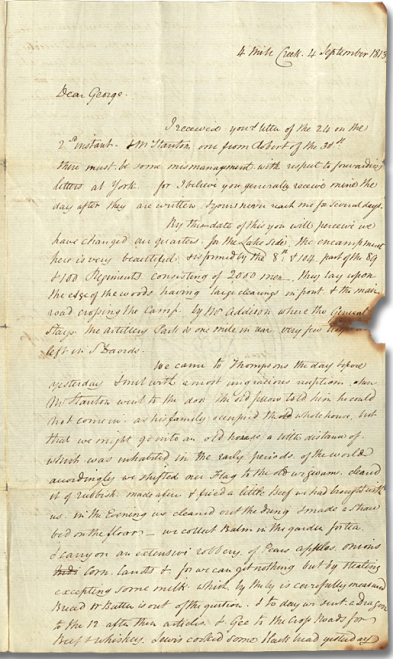 4 Mile Creek. 4 September 1813
Dear George.
I received your letter of the 24 on the
2nd instant. & Mr Stanton one from Robert of the 30th
there must be some mismanagement with respect to forwarding
letters at York. for I believe you generally receive mine the
day after they are written & yours never reach me for several days.
By the date of this you will perceive we
have changed our quarters. for the Lake side. the encampment
here is very beautiful & is formed by the 8th & 104. part of the 89
& 100 Regiments consisting of 2000 men. they lay upon
the edge of the woods having large clearings in front & the main
road crossing the Camp. by Mr Addison, where the General
Stays. the artillery Park is one mile in rear very few
left in St Davids.
We came to Thompsons the day before
yesterday & met with a most ungracious reception, when
Mr Stanton went to the door the old fellow told him he could
not come in. as his family occupied the whole house, but
that we might go into an old house a little distance off
which was inhabited in the early periods of the world
accordingly we shifted our Flag to the old wigwam. cleared
it of rubbish made a fire & fried a little Beef we had brought with
us. in the Evening we cleaned out the dung & made a
bed on the floor — we collect Balm in the garden for tea
& carry on an extensive robbery of Pears apples, onions
Corn, Carrots & for we can get nothing but by stealing
excepting some milk. which by the by is carefully measured
Bread & Butter is out of the question. & to day we sent a Dragoon
to the 12 after these articles. & Geo to the Cross Roads for
Beef & whiskey. Lewis cooked some black head yesterday